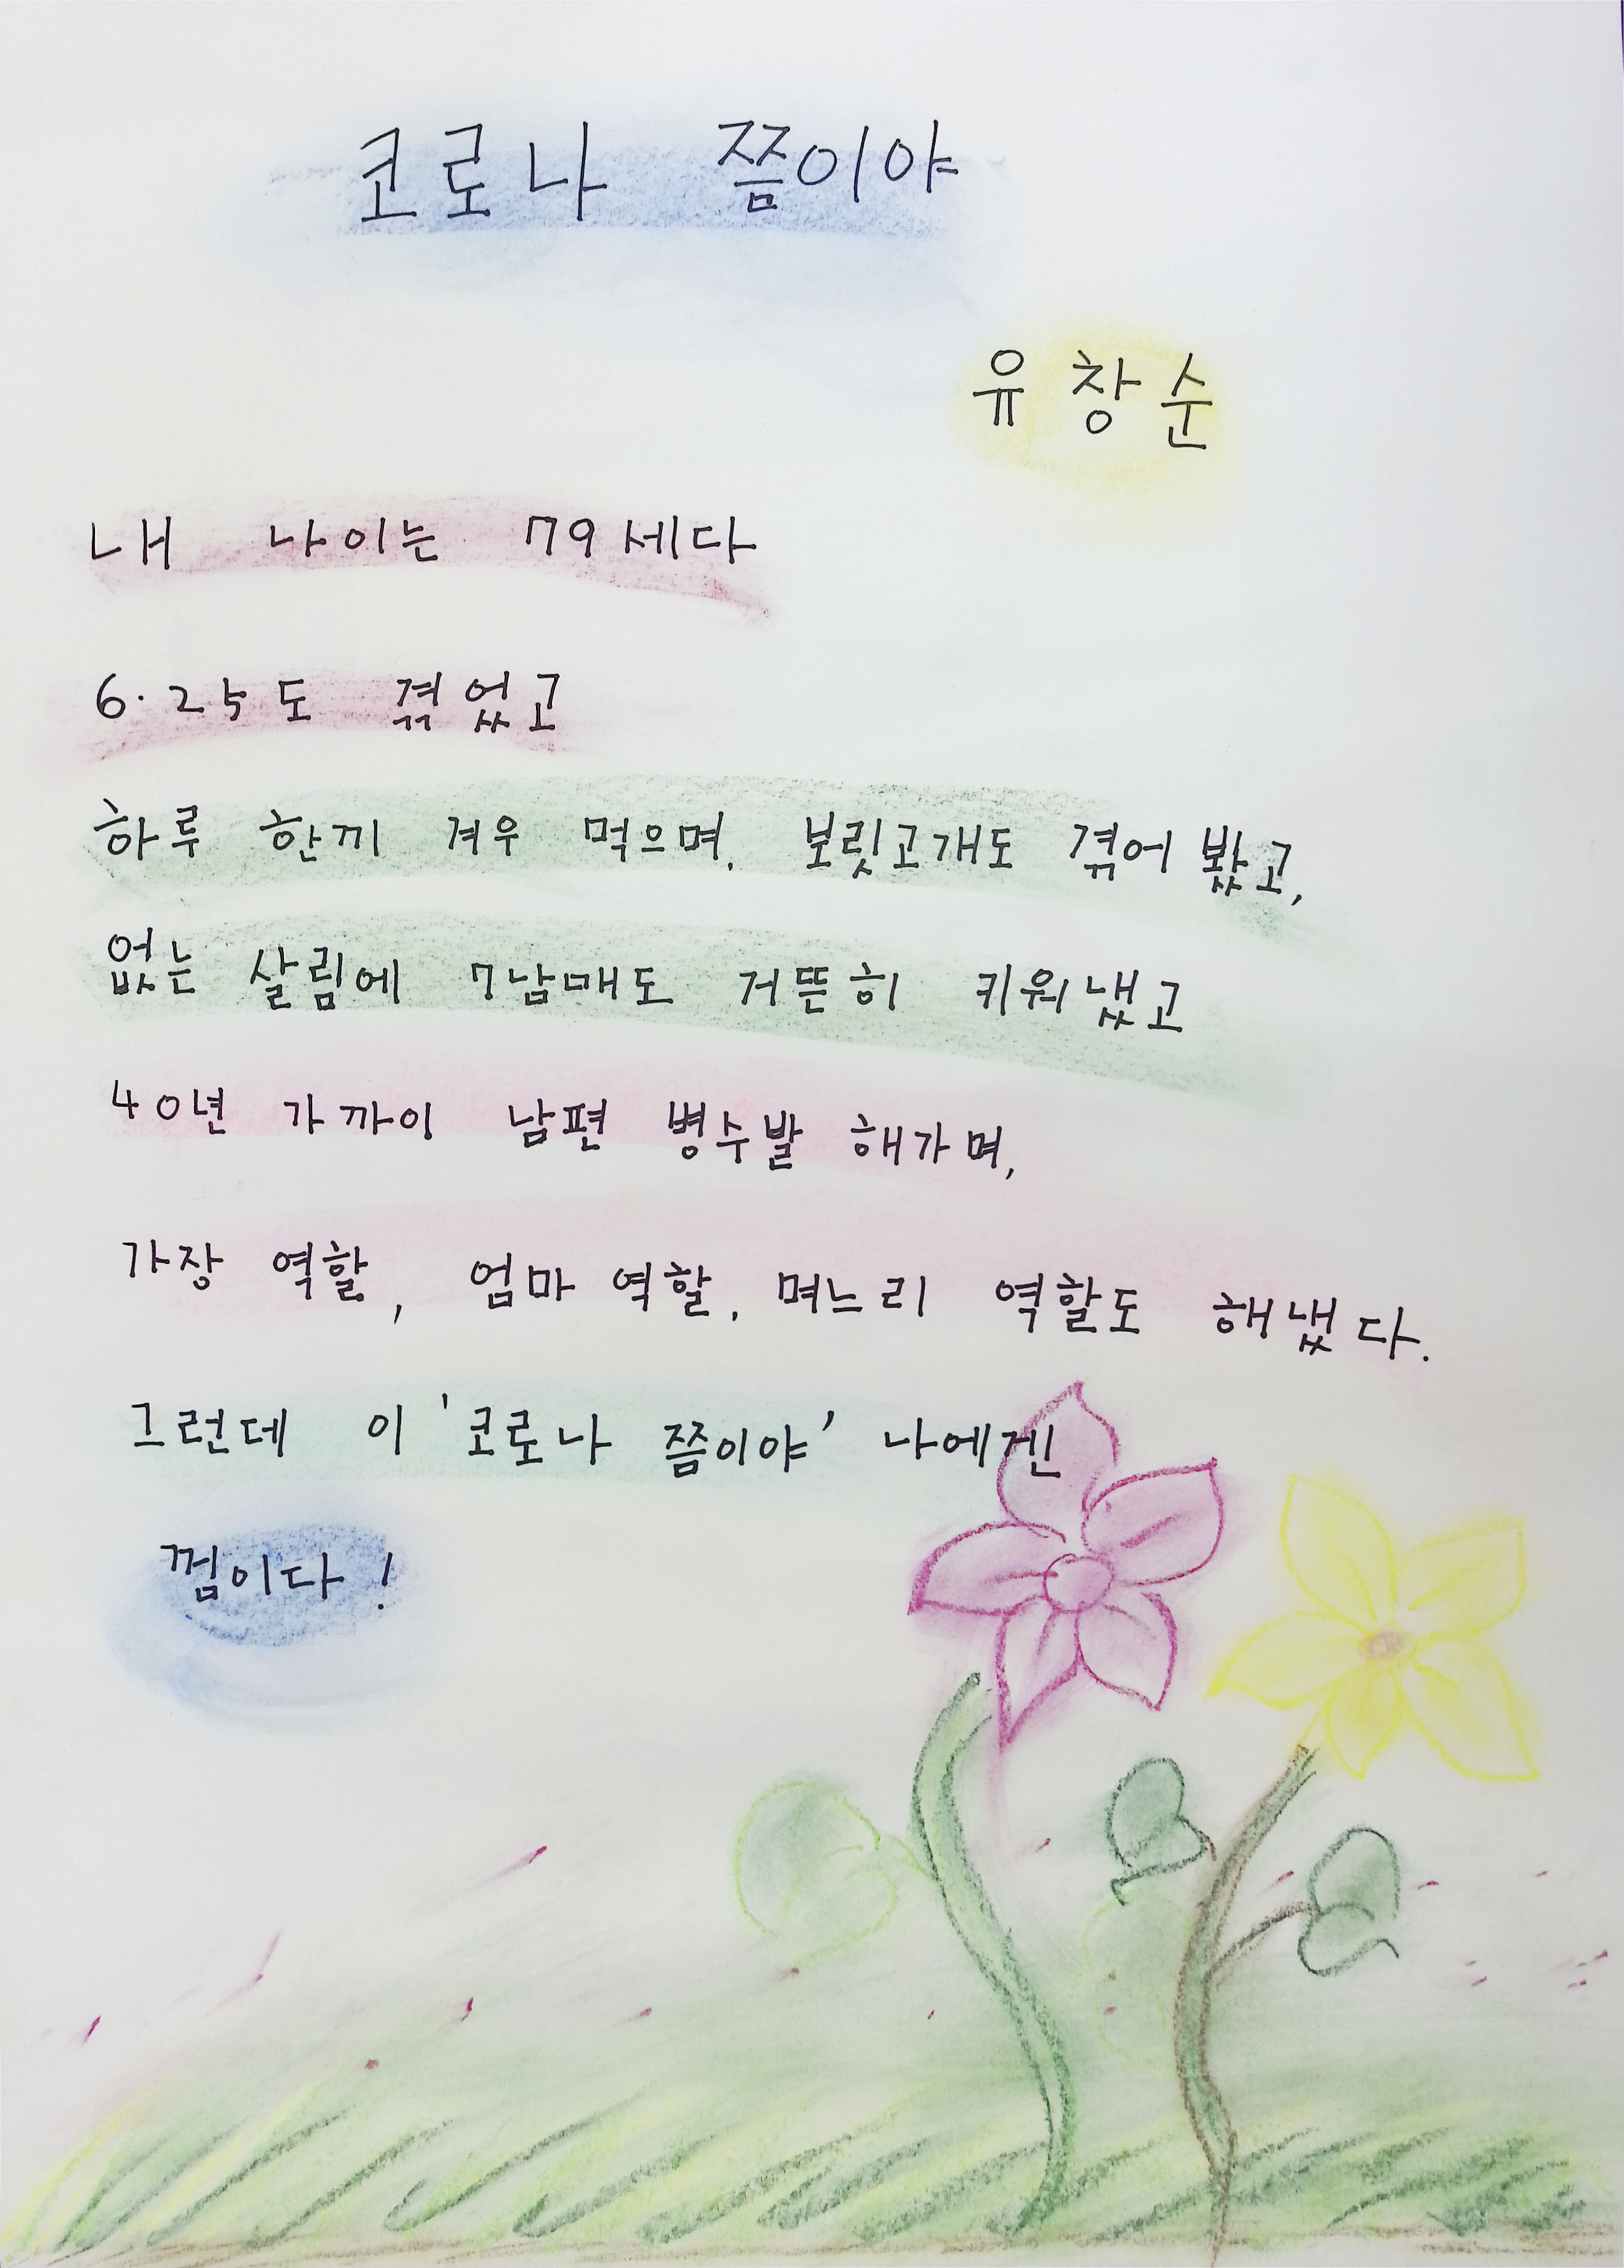 코로나 쯤이야
유창순
내 나이는 79세다
6.25도 겪었고
하루 한끼 겨우 먹으며, 보릿고개도 겪어 봤고,
없는 살림에 7남매도 거뜬히 키워냈고
40년 가까이 남편 병수발 해가며,
가장 역할, 엄마 역할, 며느리 역할도 해냈다.
그런데 이 '코로나 쯤이야' 나에겐
껌이다!